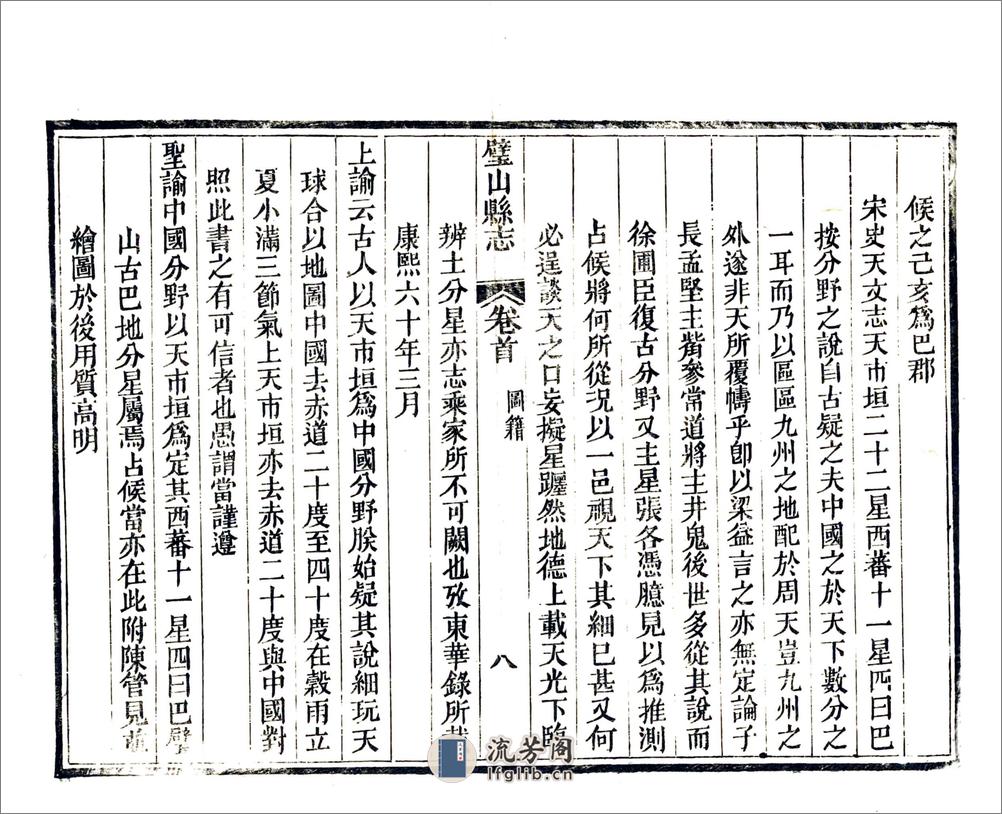 候之己亥爲巴郡
宋史天文志天市垣二十二星西蕃十一星四曰巴
按分野之說自古疑之夫中國之於天下數分之
一耳而乃以區區九州之地配於周天豈九州之
外遂非天所覆幬乎卽以梁益言之亦無定論子
長孟堅主觜參常道將主井鬼後世多從其說而
徐圃臣復古分野又主星張各憑臆見以爲推測
占候將何所從况以一邑視天下其細已甚又何
必逞談天之口妄擬星躔然地德上載天光下臨
璧山縣志
卷首
圖籍
八
辨土分星亦志乘家所不可闕也攷東華錄所載
康熙六十年三月
上諭云古人以天市垣爲中國分野朕始疑其說細玩天
球合以地圖中國去赤道二十度至四十度在穀雨立
夏小滿三節氣上天市垣亦去赤道二十度與中國對
照此書之有可信者也愚謂當謹遵
聖諭中國分野以天市垣爲定其西蕃十一星四曰巴璧
山古巴地分星屬焉占候當亦在此附陳管見並
繪圖於後用質高明
流芳阁
lfglib.cn